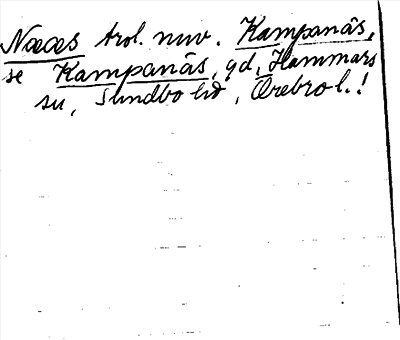 Næes trol. nuv. Kampanäs,
se Kampanäs, gd, Hammars
sn, Sundbo hd, Örebro l.!